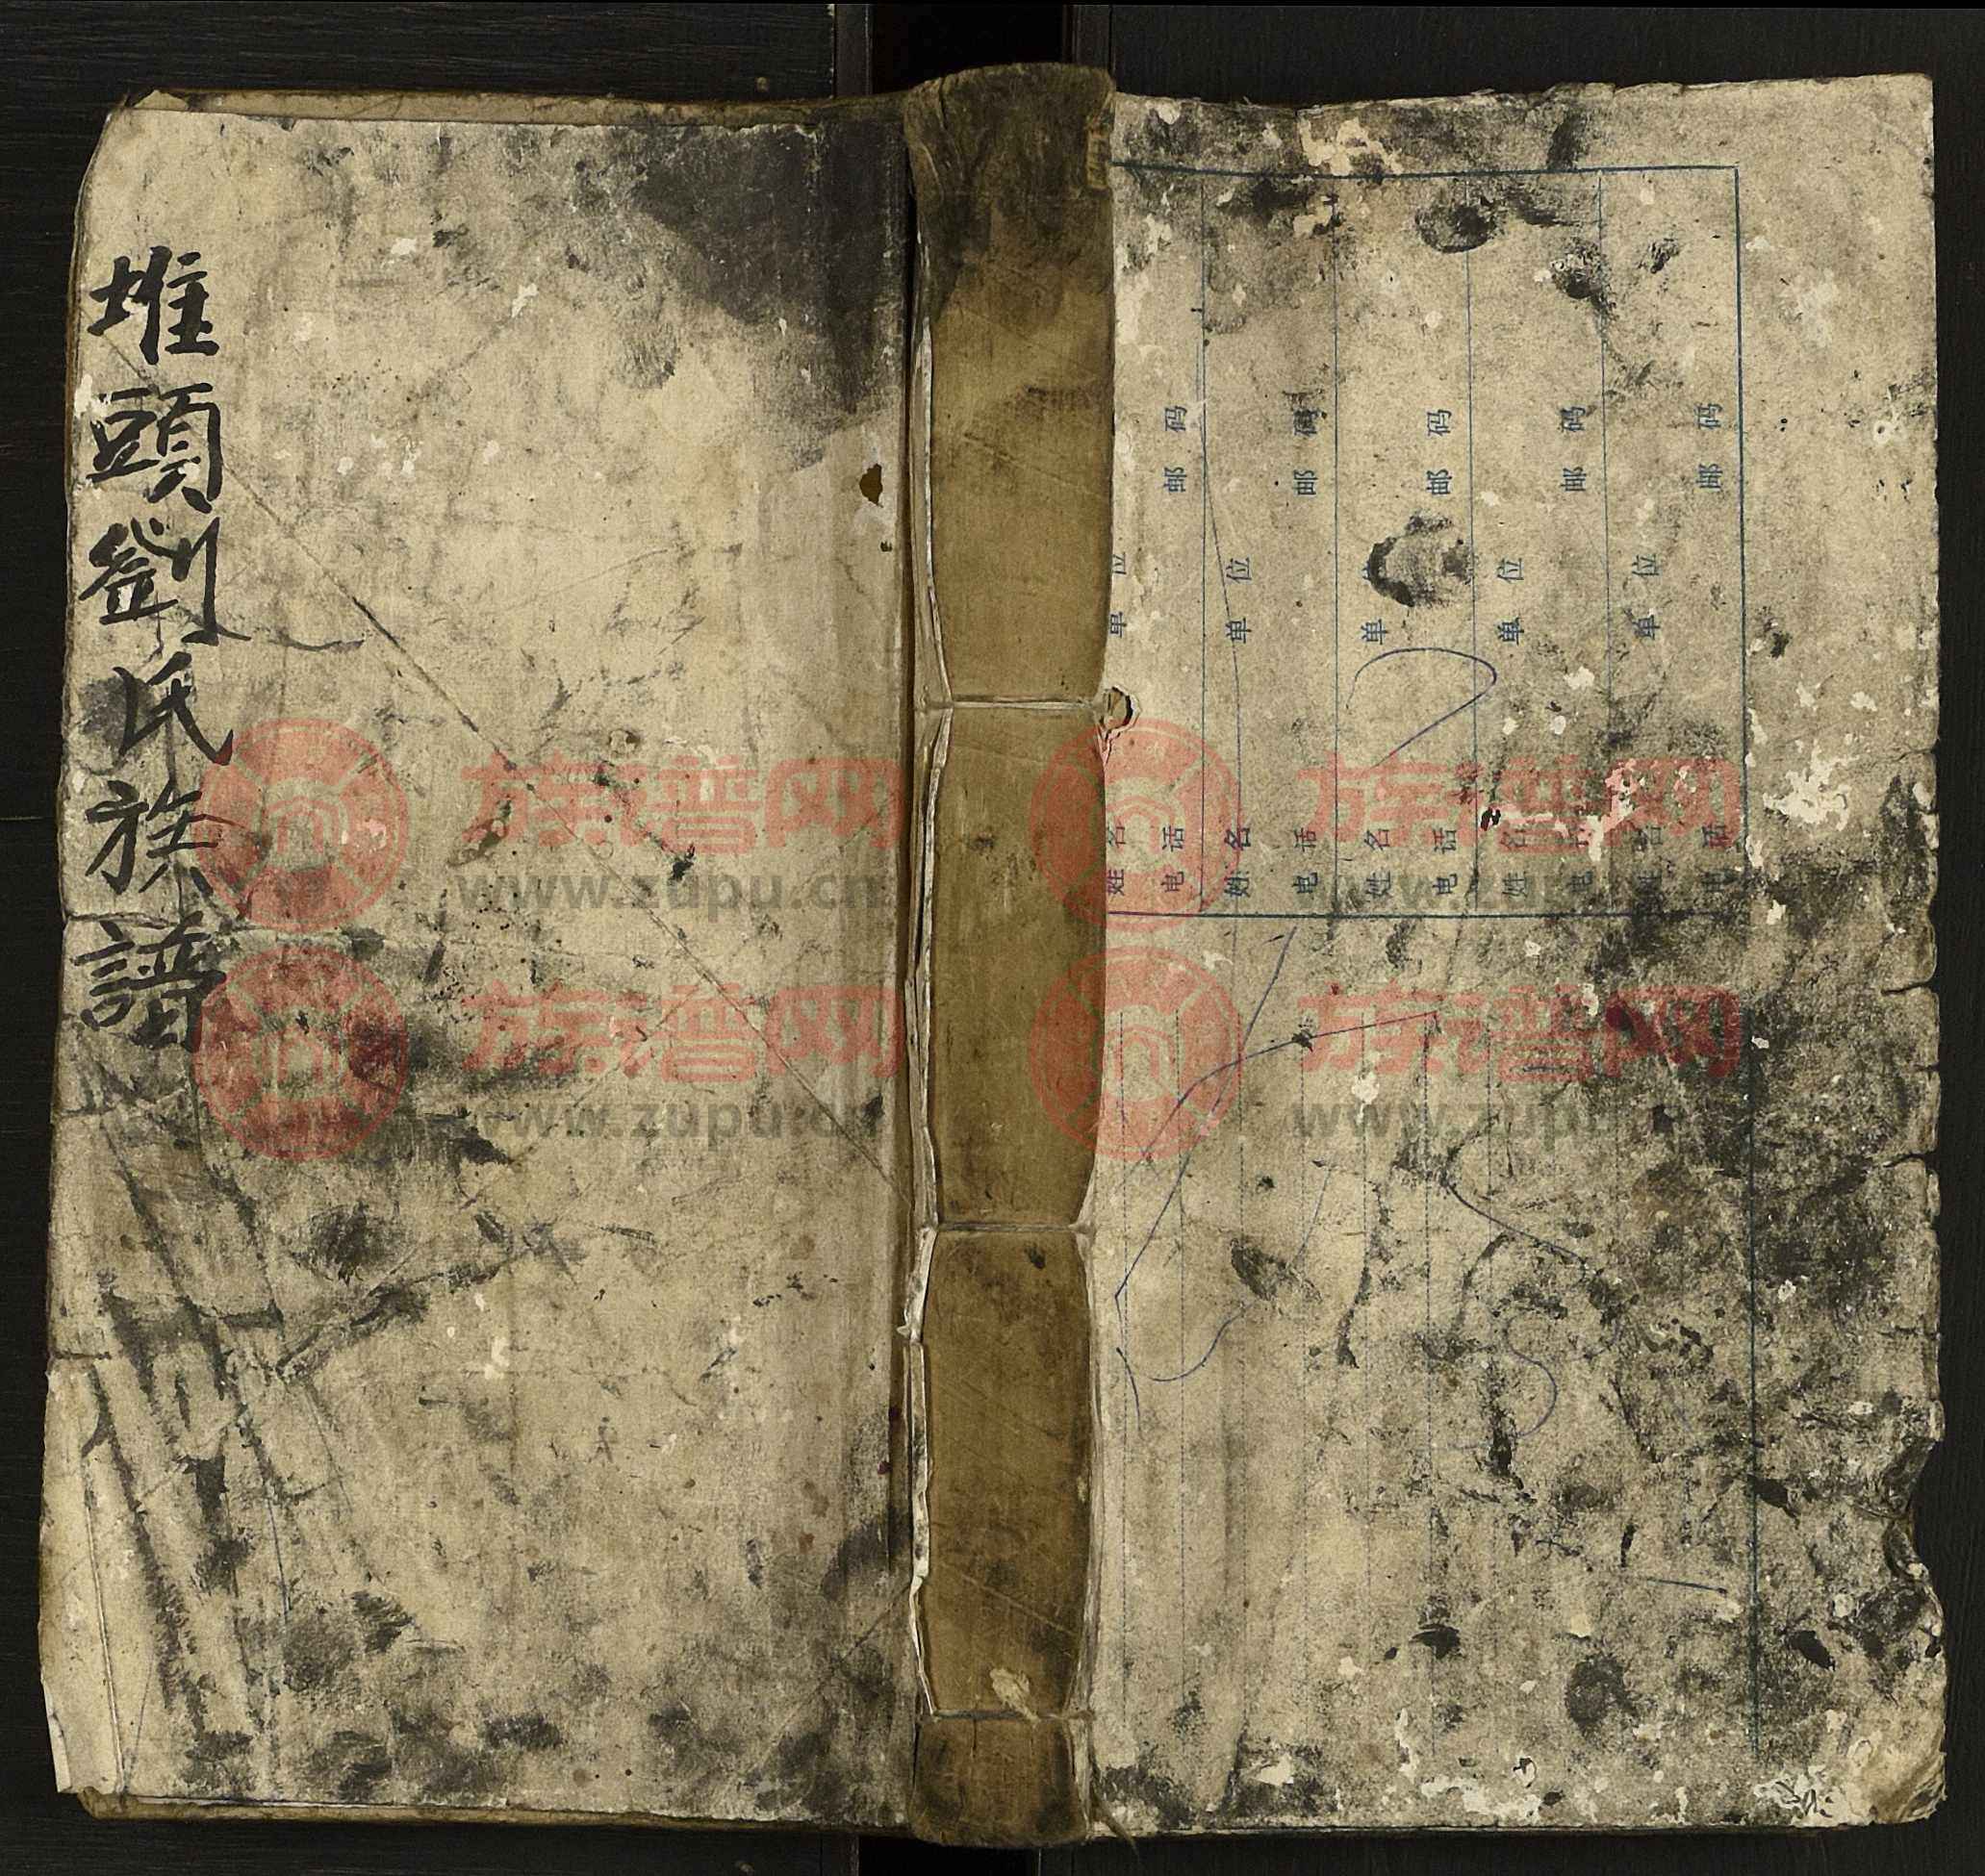 堆頭劉氏族譜
姓名 单位
电话 邮码
姓名 单位
电话 邮码
姓名 单
电话 邮码
姓名 单位
电话 邮码
姓名 单位
电话 邮码
族谱网
www.zupu.cn
族谱网
www.zupu.cn
族谱网
www.zupu.cn
族谱网
www.zupu.cn